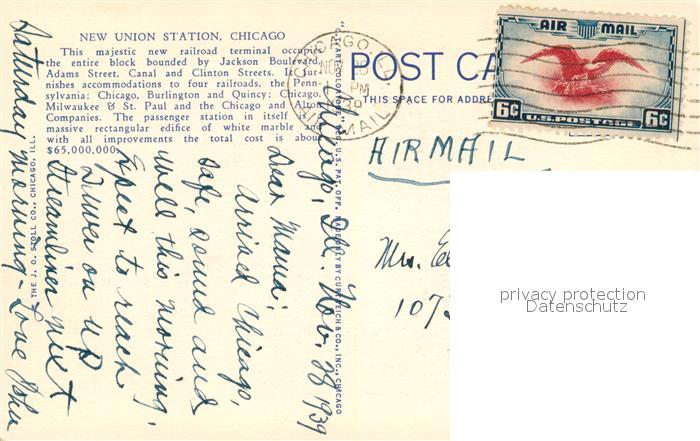 NEW UNION STATION, CHICAGO
This majestic new railroad terminal occupies
the entire block bounded by Jackson Boulevard,
Adams Street, Canal and Clinton Streets. It fur-
nishes accommodations to four railroads, the Penn-
sylvania; Chicago, Burlington and Quincy; Chicago,
Milwaukee & St. Paul and the Chicago and Alton
Companies. The passenger station in itself is
massive rectangular edifice of white marble and
with all improvements the total cost is about
$65,000,000.
Chicago, Ill. Nov. 28 1939
Dear Mama:
Arrived Chicago,
safe, sound and
well this morning.
Expect to reach
Denver on UP
Streamliner next
Saturday morning - Love
THE J. O. STOLL CO., CHICAGO, ILL.
REG. U.S. PAT. OFF. MADE ONLY BY CURT TEICH & CO., INC., CHICAGO
CHICAGO, ILL.
NOV
PM
AIR MAIL
POST CA
THIS SPACE FOR ADDRE
AIR MAIL
6¢ U.S. POSTAGE 6¢
AIRMAIL
Mrs.
107
privacy protection
Datenschutz